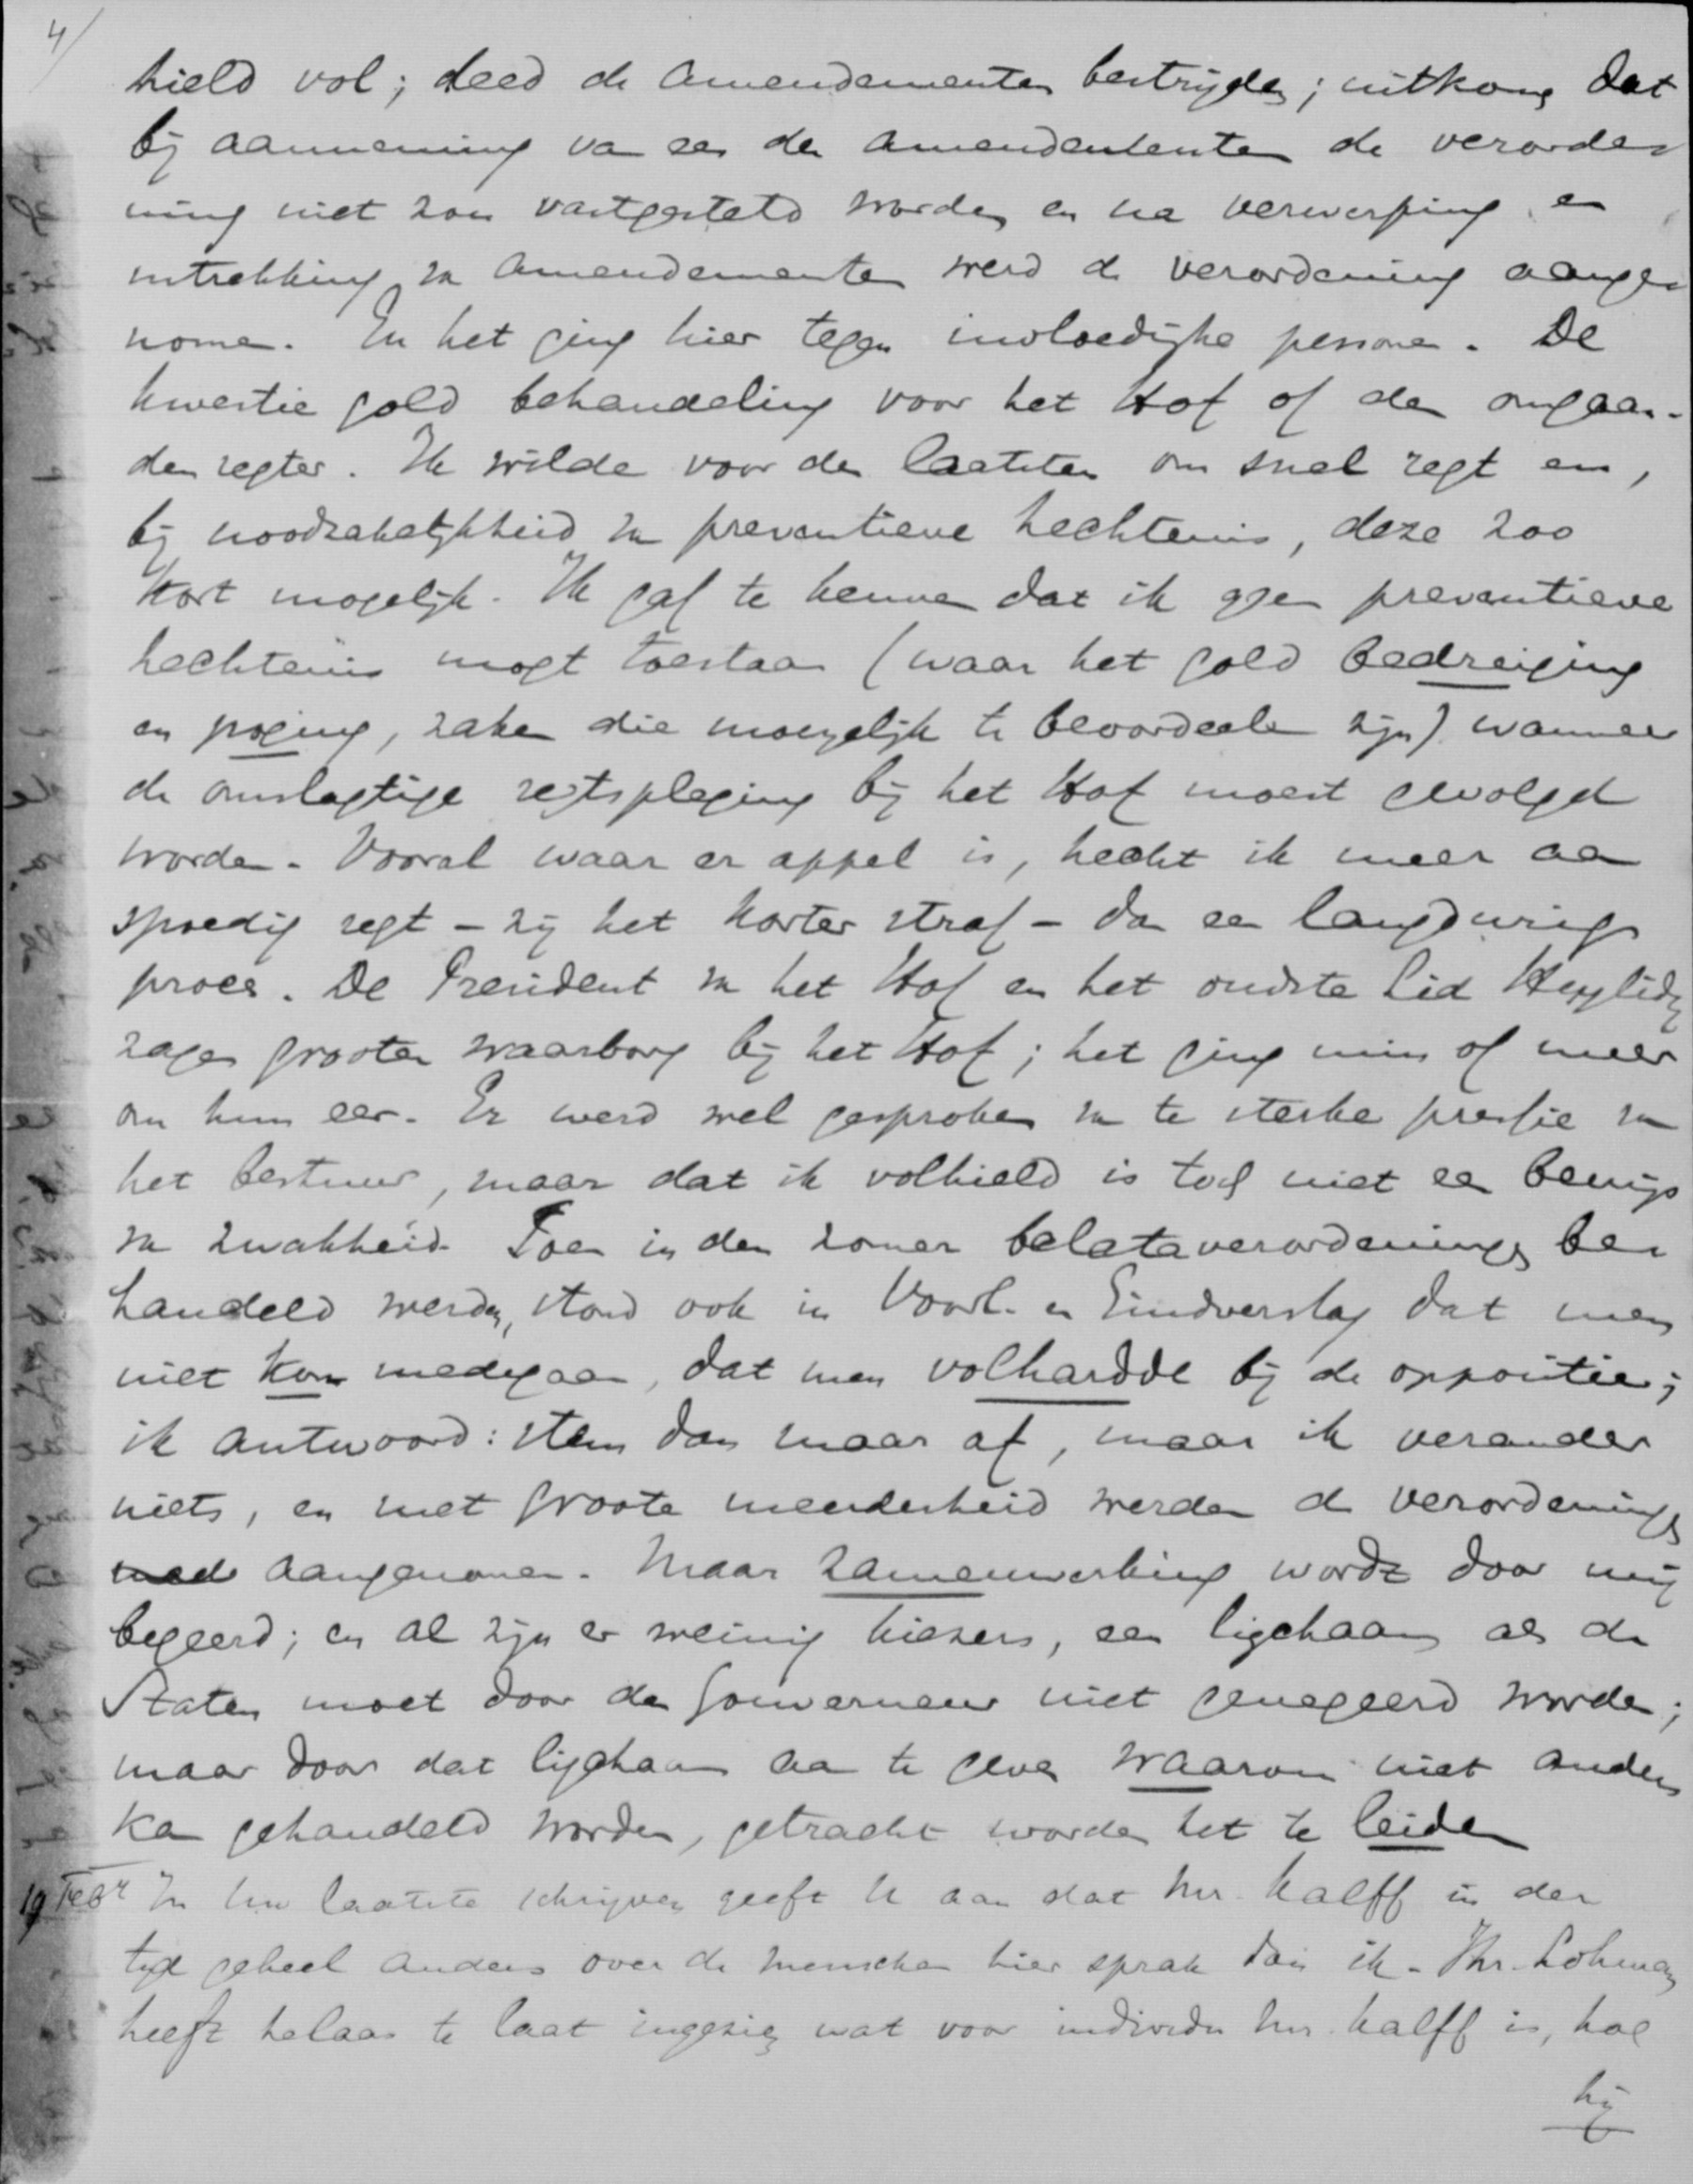 4/
hield vol; deed de amendementen bestrijden; uitkomst dat
bij aanneming van een der amendementen de verorde-
ning niet zou vastgesteld worden en na verwerping en
intrekking van amendementen werd de verordening aange-
nomen. En het ging hier tegen invloedrijke personen. De
kwestie gold behandeling voor het Hof of den omgaan-
den regter. Ik wilde voor den laatsten om snel regt en,
bij noodzakelijkheid van preventieve hechtenis, deze zoo
kort mogelijk. Ik gaf te kennen dat ik geen preventieve
hechtenis mogt toestaan (waar het gold bedreiging
en poging, zaken die moeyelijk te beoordeelen zijn) wanneer
de omslagtige regtspleging bij het Hof moest gevolgd
worden. Vooral waar er appel is, hecht ik meer aan
spoedig regt - zij het korter straf - dan een langdurig
proces. De President van het Hof en het oudste Lid
zagen grooten waarborg bij het Hof; het ging min of meer
om hun eer. Er werd wel gesproken van te sterke pressie van
het bestuur, maar dat ik volhield is toch niet een bewijs
van zwakheid. Toen in den zomer balataverordeningen be-
handeld werden, stond ook in Voorl. en Eindverslag dat men
niet kon medegaan, dat men volhardde bij de oppositie;
ik antwoord: stem dan maar af, maar ik verander
niets, en met groote meerderheid werden de verordeningen
aangenomen. Maar zamenwerking wordt door mij
begeerd; en al zijn er weinig kiezers, een ligchaam als de
Staten moet door den Gouverneur niet genegeerd worden;
maar door dat ligchaam aan te geven waarom niet anders
kan gehandeld worden, getracht worden het te leiden
19 Febr In Uw laatste schrijven geeft U aan dat hr. Kalff in der
tijd geheel anders over de menschen hier sprak dan ik. Jhr. Lohman
heeft helaas te laat ingezien wat voor individu hr. Kalff is, hoe
hij